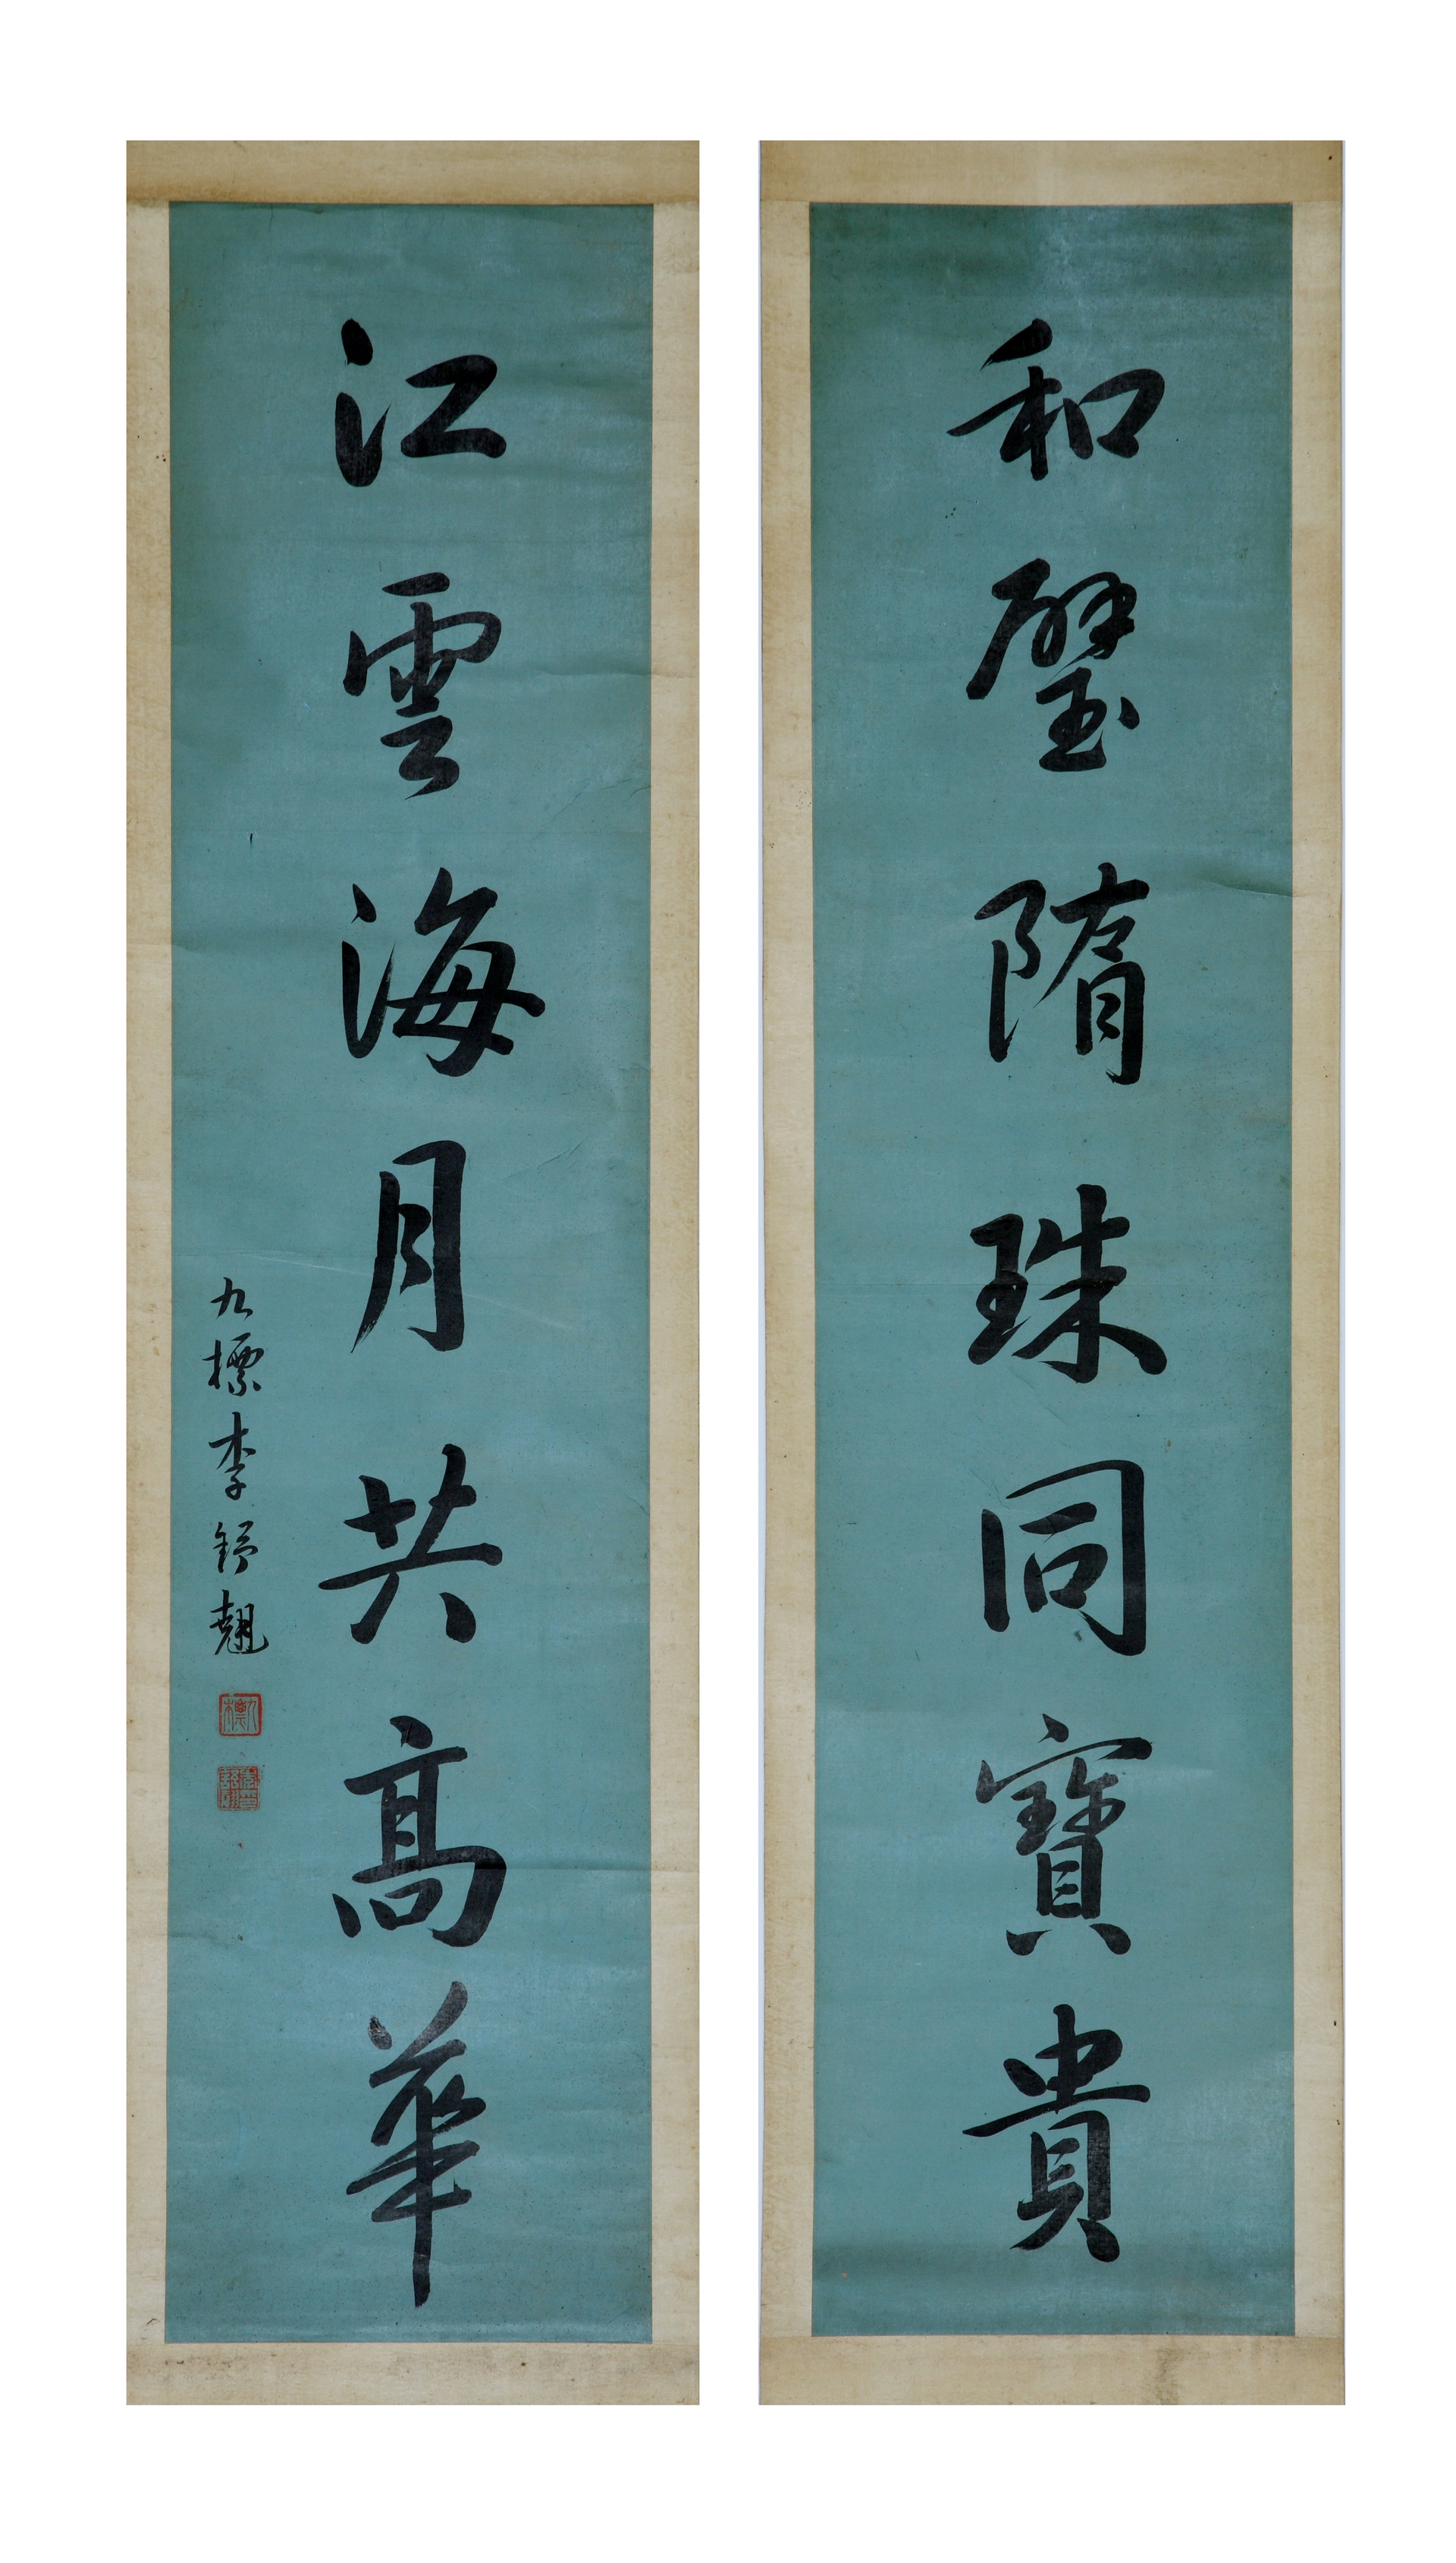 和璧隋珠同寶貴
江雲海月共高華
九標李舒翹
九標